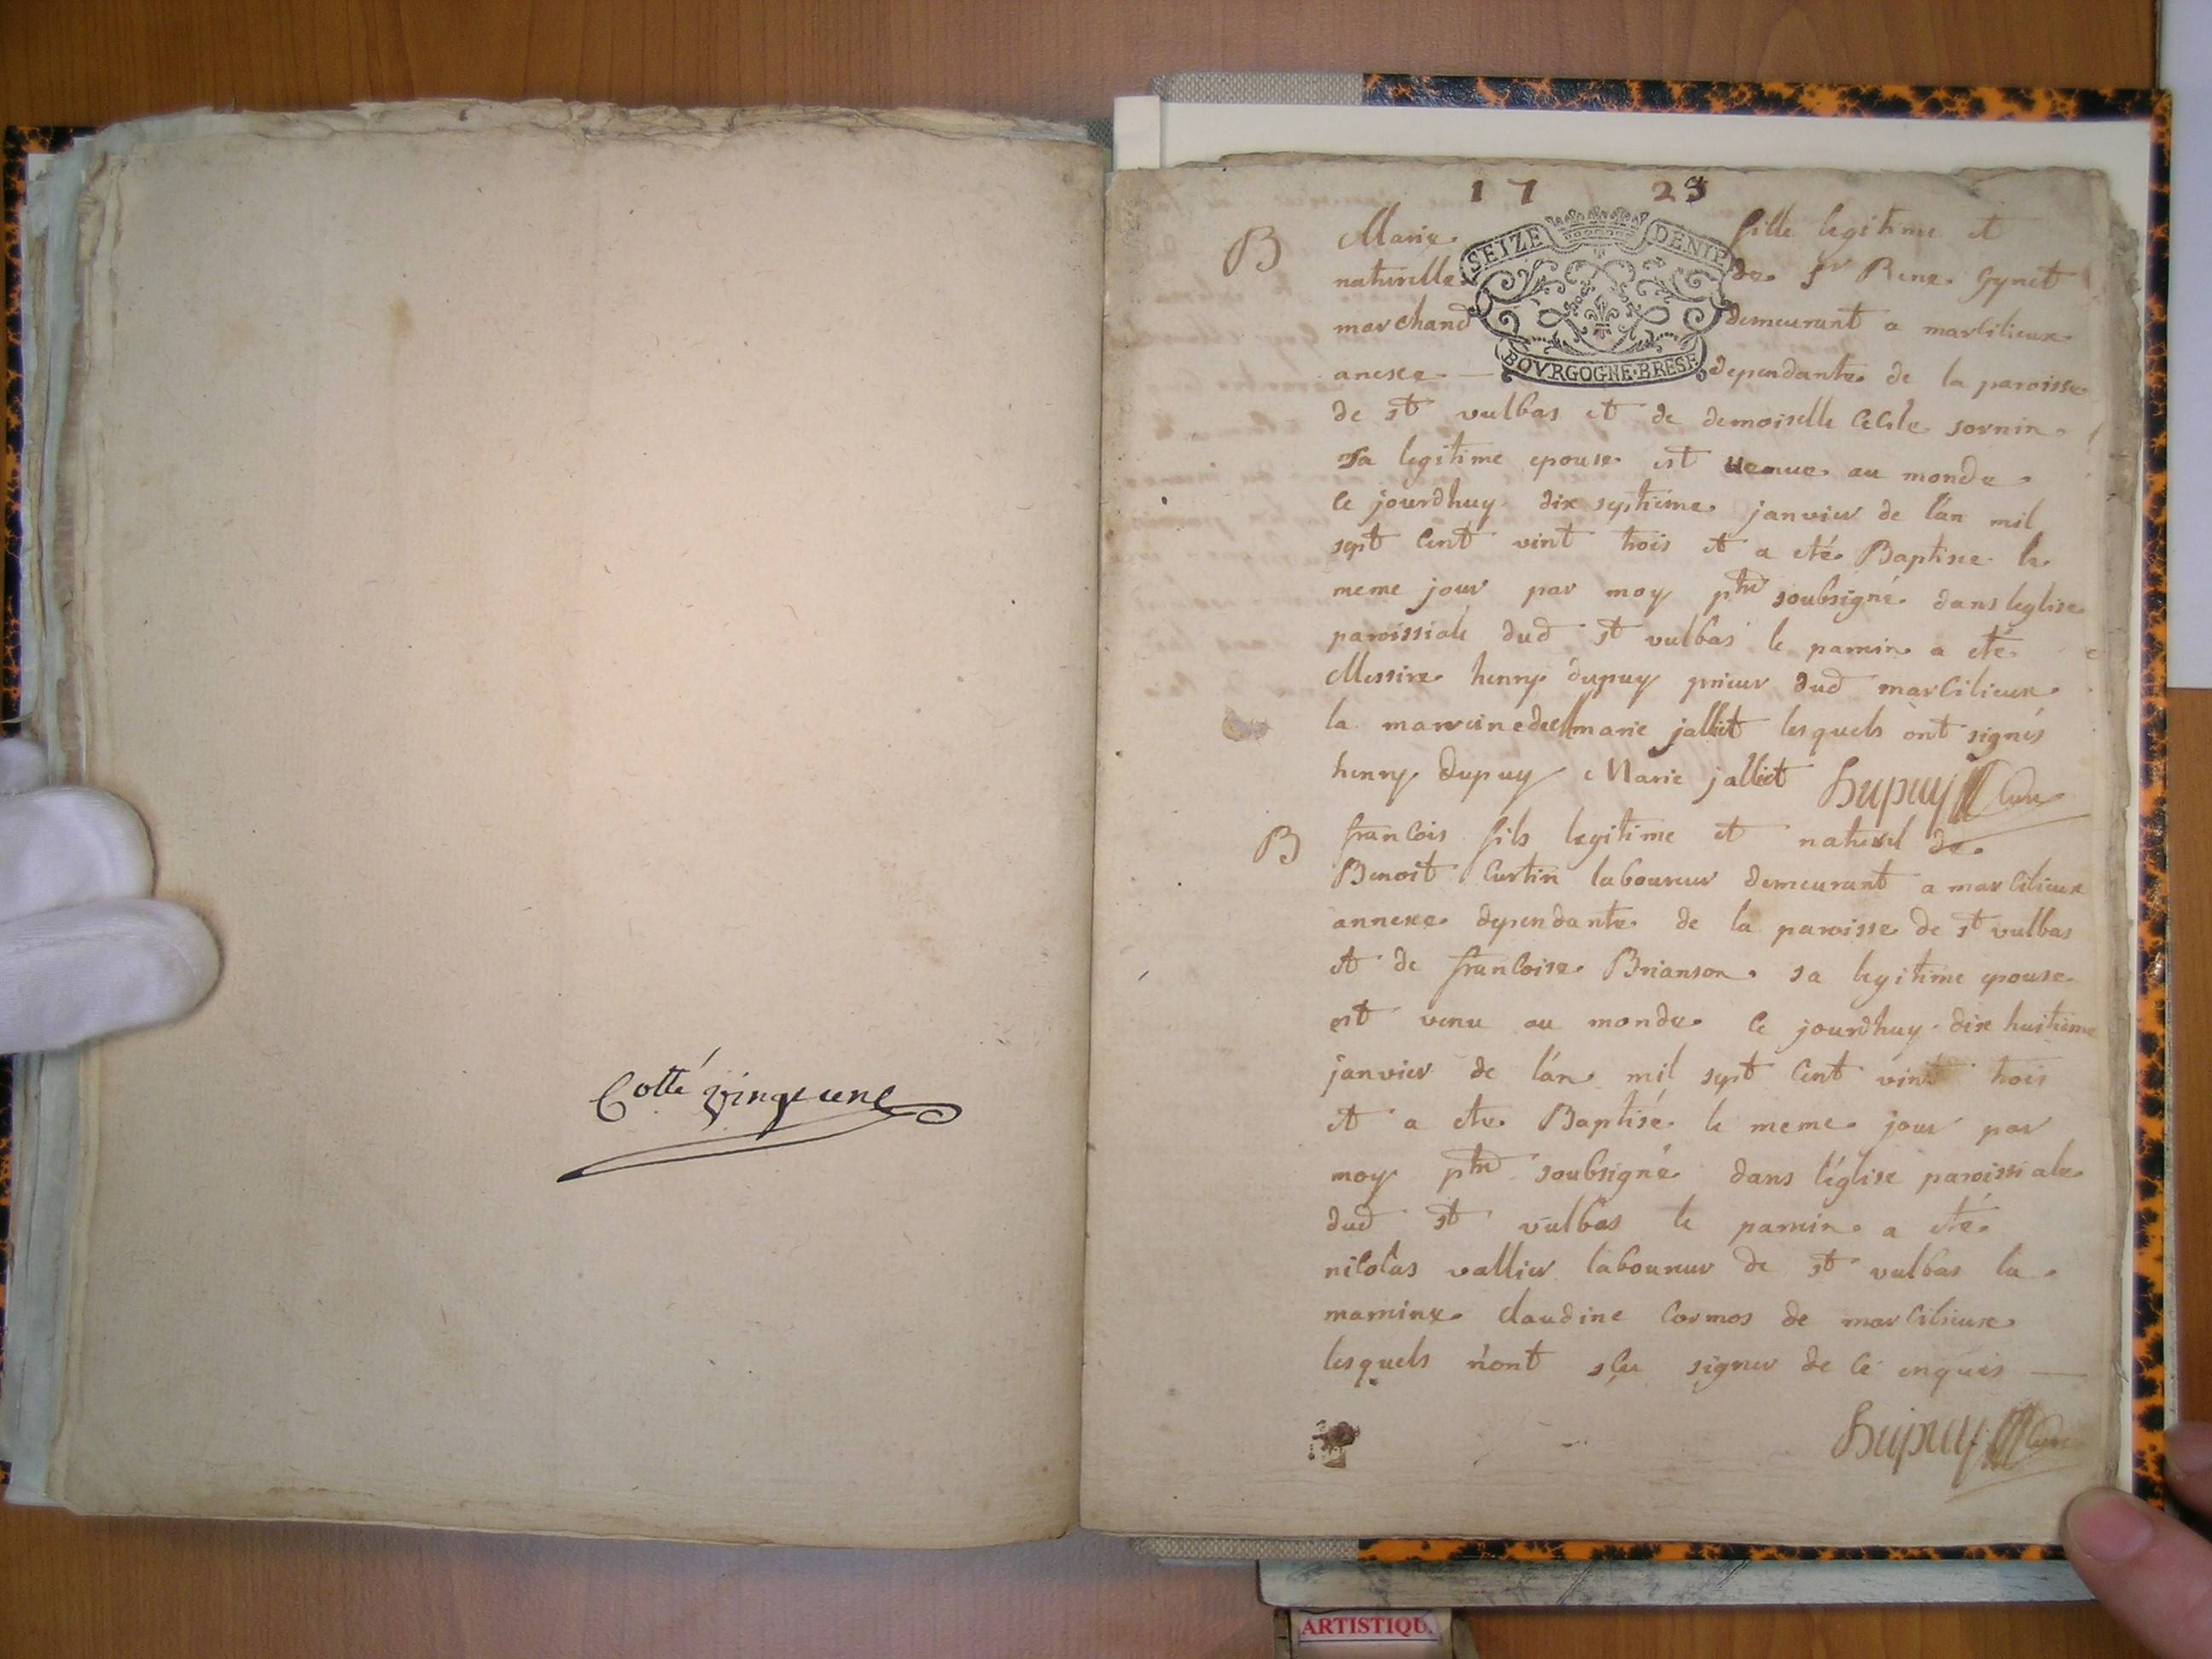 Cotté vingt une
17 23
B Marie fille legitime et
naturelle de Sr Rene Gynet
marchand demeurant a marcilieux
anexe dependante de la paroisse
SEIZE DENIE
BOVRGOGNE·BRESE
de st vulbas et de demoiselle Cecile sornin
sa legitime epouse est venue au monde
ce jourdhuy dix septieme janvier de l'an mil
sept cent vint trois et a eté Baptisee le
meme jour par moy ptre soubsigné dans leglise
paroissiale dud st vulbas le parrin a eté
Messire henry dupuy prieur dud marcilieux
la marreine marie jalliet lesquels ont signés
henry dupuy Marie jalliet Dupuy Curé
B francois fils legitime et naturel de
Benoit Curtin laboureur demeurant a marcilieux
annexe dependante de la paroisse de st vulbas
et de francoise Brianson sa legitime epouse
est venu au monde ce jourdhuy dix huitieme
janvier de l'an mil sept cent vint trois
et a ete Baptisé le meme jour par
moy ptre soubsigné dans l'église paroissiale
dud st vulbas le parrin a eté
nicolas vallier laboureur de st vulbas la
marrine claudine Cormos de marcilieux
lesquels n'ont sçu signer de ce enquis
Dupuy Curé
ARTISTIQU